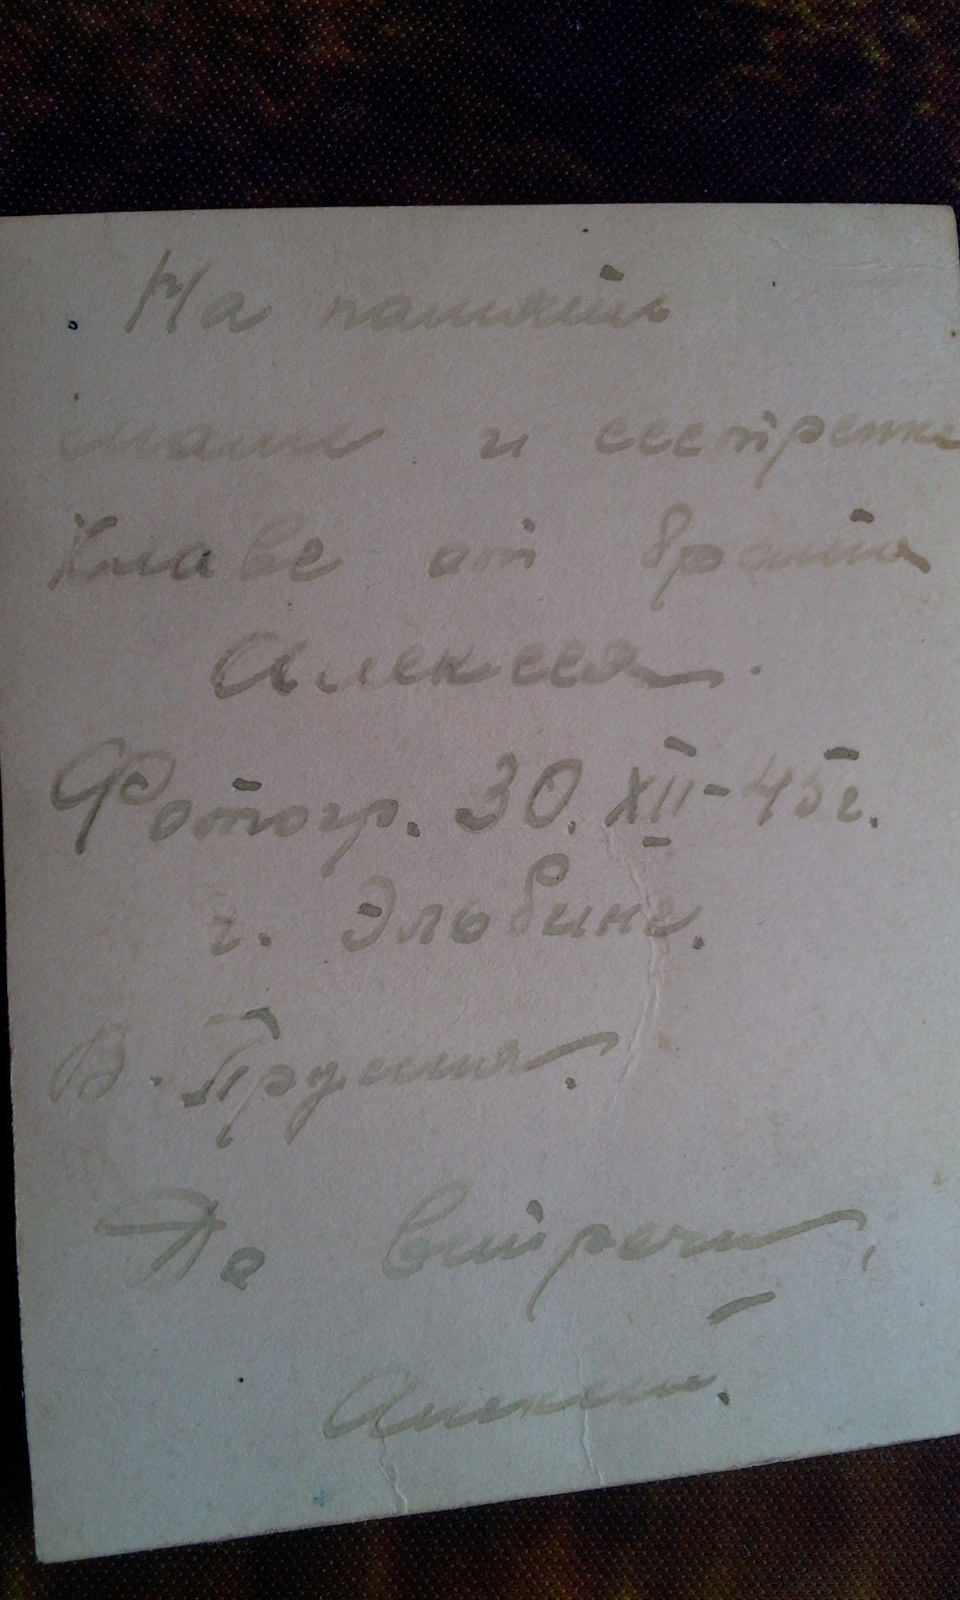 На память
маме и сестренке
Клаве от брата
Алексея.
Фотогр. 30. XII-45г.
г. Эльбинг.
В. Пруссия.
До встречи,
Алексей.